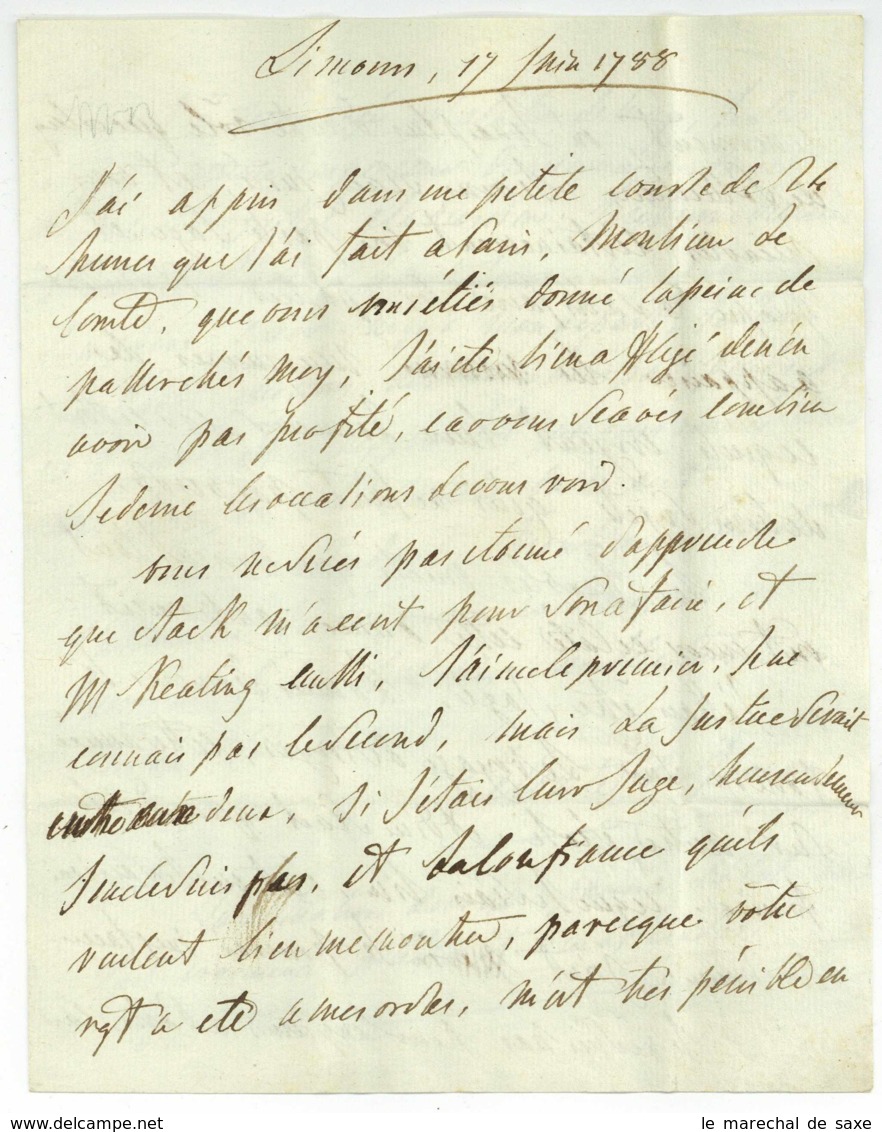 Limours, 17 Juin 1788
J'ai appris dans une petite course de 24
heures que J'ai fait a Paris, Monsieur Le
Comte, que vous vous étiés donné la peine de
passer chés moy, J'ai eté bien affligé de n'en
avoir pas profité, car vous scavés combien
Je desire les occasions de vous voir.
vous ne serés pas etonné d'apprendre
que Stack m'a ecrit pour son affaire, et
M Keating aussi, J'aime le premier, Je ne
connais pas le second, mais La Justice serait
entre eux deux, si J'etais leur Juge, heureusement
Je ne le suis plus, et La confiance qu'ils
veulent bien me montrer, parceque vôtre
rgt a eté a mes ordres, m'est très pénible en
www.delcampe.net
le marechal de saxe